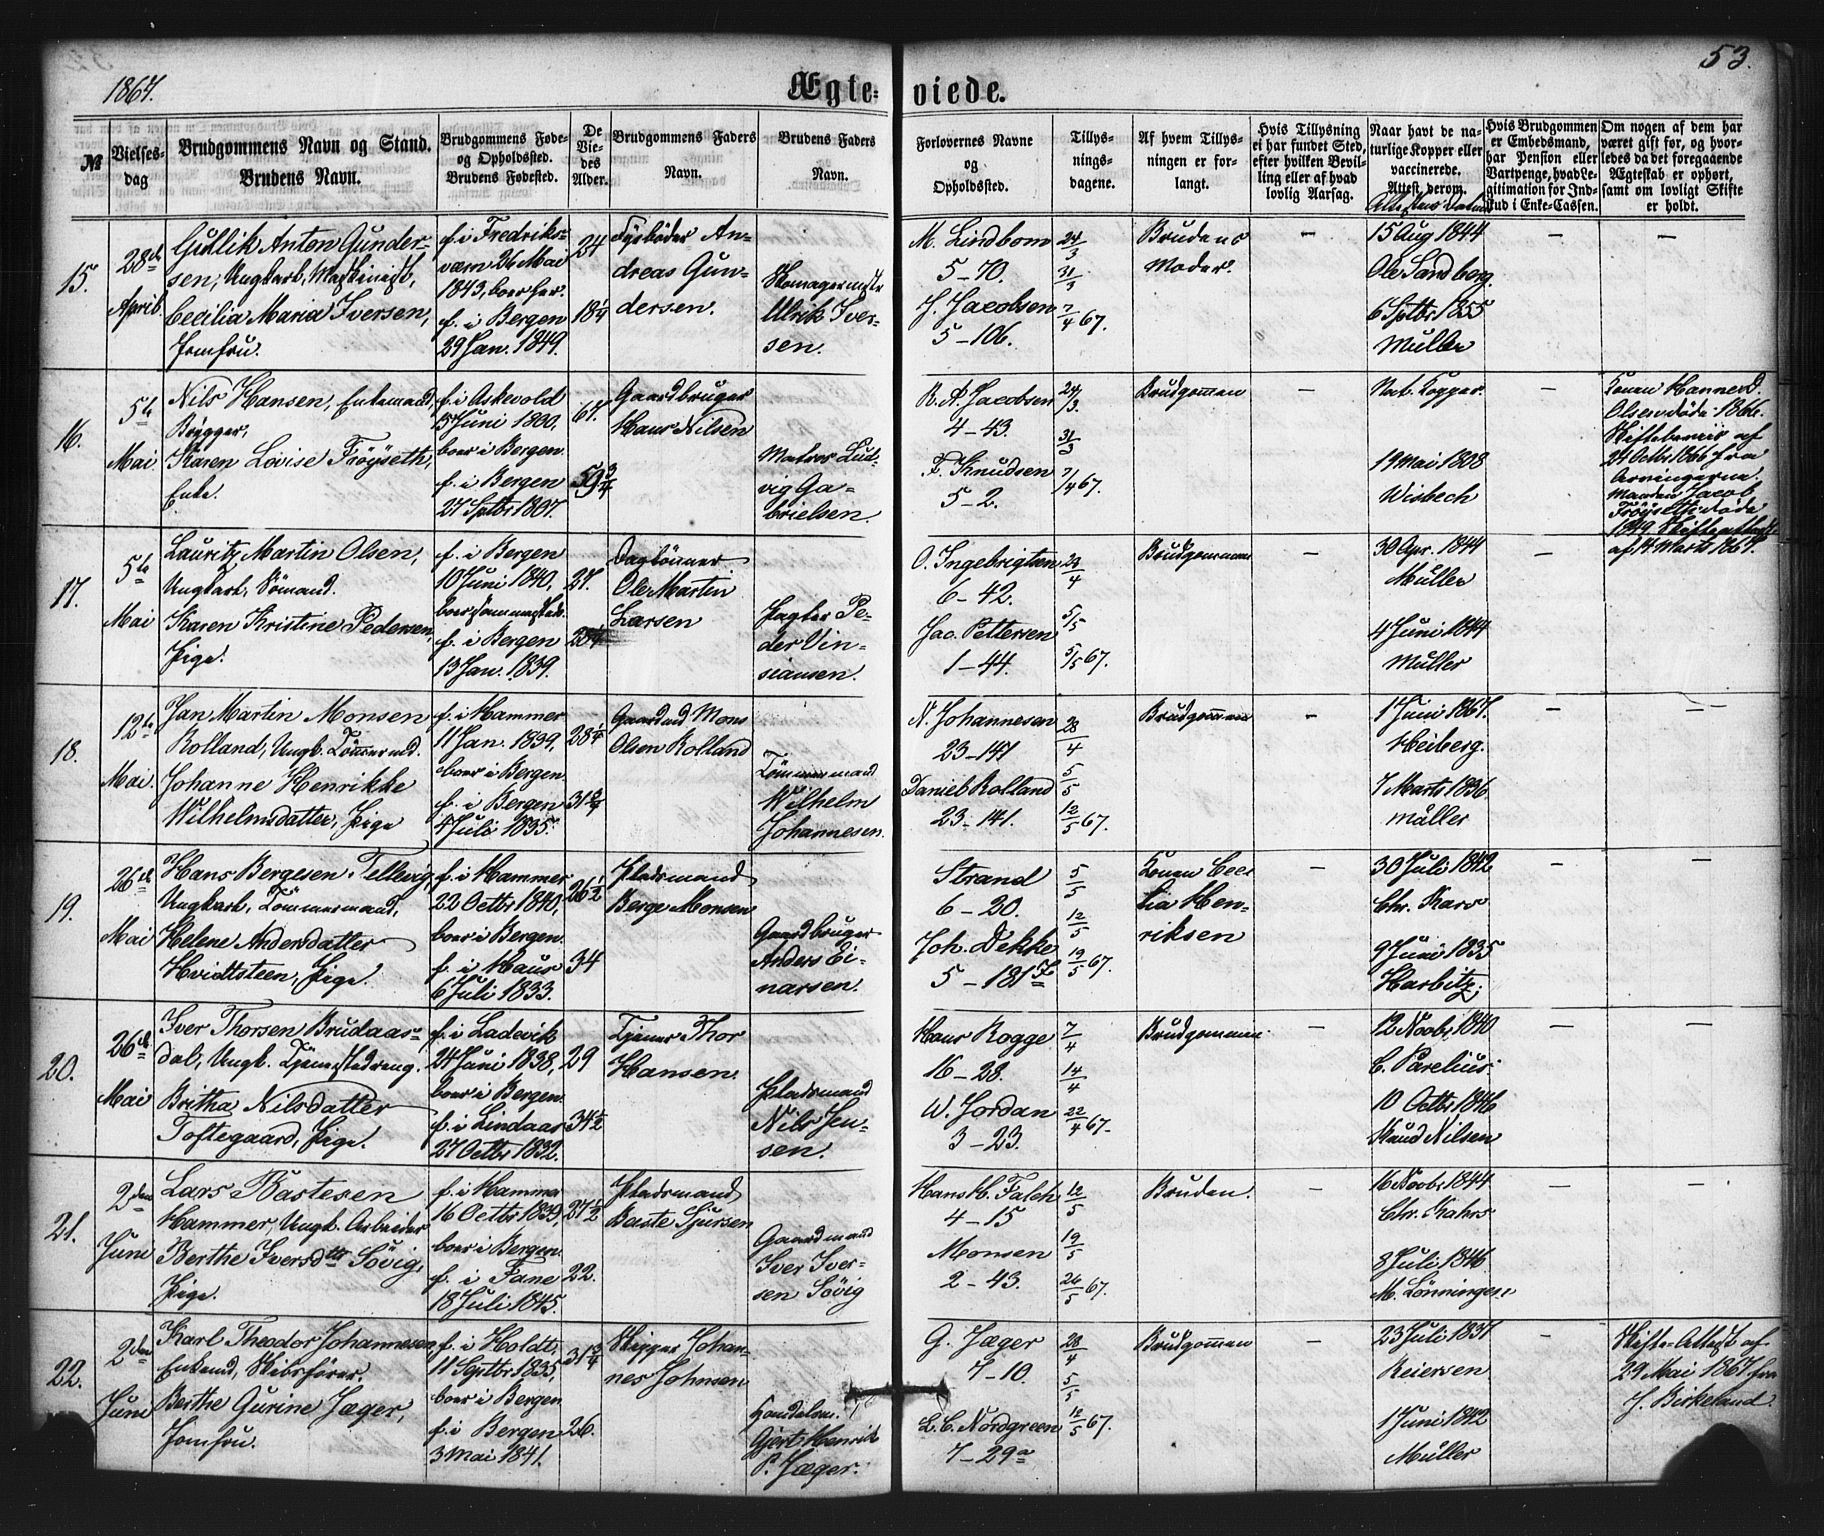 1867.
Ægte-
viede.
53.
№
Vielses-
dag
Brudgommens Navn og Stand.
Brudens Navn.
Brudgommens Føde-
og Opholdssted.
Brudens Fødested.
De
Vie-
des
Alder.
Brudgommens Faders
Navn.
Brudens Faders
Navn.
Forlovernes Navne
og
Opholdssted.
Tillys-
nings-
dagene.
Af hvem Tillys-
ningen er for-
langt.
Hvis Tillysning
ei har fundet Sted,
efter hvilken Bevil-
ling eller af hvad
lovlig Aarsag.
Naar havt de na-
turlige Kopper eller
vaccinerede.
Attest derom.
Hvis Brudgommen
er Embedsmand,
har Pension eller
Vartpenge, hvad Le-
gitimation for Ind-
skud i Enke-Cassen.
Om nogen af dem har
været gift før, og hvor-
ledes da det foregaaende
Ægteskab er ophørt,
samt om lovligt Skifte
er holdt.
15.
28de
April
Gullik Anton Gunder-
sen, Ungkarl, Maskinist,
Cecilia Maria Iversen,
Jomfru.
f. i Fredriks-
værn 26 Mai
1843, boer her.
f. i Bergen
29 Jan. 1849.
24
18¼
Fyrbøder An-
dreas Gun-
dersen.
Ulrik Iver-
sen.
M. Lindbom
5-70.
J. Jacobsen
5-106.
24/3
31/3
7/4 67.
Brudens
Moder.
-
15 Aug 1844
Ole Sandberg.
6 Sptbr 1855
Müller
-
-
16.
5te
Mai
Nils Hansen, Enkemand,
Brygger,
Karen Lovise Frøyseth,
Enke.
f. i Askevold
5 Juni 1800.
boer i Bergen.
f. i Bergen
27 Sptbr 1807.
67.
59¾
Gaardbruger
Hans Nilsen
Matros Lud-
vig Ga-
brielsen.
R. A. Jacobsen
4-43.
F. Knudsen
5-2.
24/3.
31/3
7/4 67.
Brudgommen
-
Nat. Kopper.
19 Mai 1808
Wisbech
-
Konen Hanne D.
Olsen døde 1866.
Skiftebeviis af
24 Octbr 1866 fra
Arvingerne.
Manden Jacob
Frøyseth døde
1849. Skifteattest
af 14 Marts 1867.
17.
5te
Mai
Lauritz Martin Olsen,
Ungkarl, Sømand.
Karen Kristine Pedersen,
Pige.
f. i Bergen
10 Juni 1840,
boer sammesteds.
f. i Bergen
13 Jan. 1839.
27.
28¼
Daglønner
Ole Martin
Larsen
Pagter Pe-
der Vin-
siansen.
O. Ingebrigtsen
6-42.
Jac. Pettersen
1-44.
28/4
5/5
5/5 67.
Brudgommen
-
30 Apr. 1844
Müller
4 Juni 1844
Müller
-
18.
12te
Mai.
Jan Martin Monsen
Rolland, Ungk. Tømmermd.
Johanne Henrikke
Wilhelmsdatter, Pige
f. i Hammer
11 Jan. 1839.
boer i Bergen.
f. i Bergen
4 Juli 1835.
28¼
31¾
Gaardmd Mons
Olsen Rolland
Tømmermand
Wilhelm
Johannesen.
N. Johannesen
23-147
Daniel Rolland
23-141.
28/4
5/5
12/5 67.
Brudgommen
-
1 Juni 1867.
Heiberg.
7 Marts 1836
Müller
-
-
19.
26de
Mai
Hans Bergesen Tellevig,
Ungkarl, Tømmermand,
Helene Andersdatter
Hvidtsteen, Pige.
f. i Hammer
22 Octbr 1840,
boer i Bergen.
f. i Haus
6 Juli 1833.
26½
34
Pladsmand
Berge Monsen
Gaardbruger
Anders Ei-
narsen.
Strand
6-20.
Joh. Dekke
5-181
5/5
12/5
19/5 67.
Konen Ceci-
lia Hen-
riksen
-
30 Juli 1842
Chr. Kars
9 Juni 1835
Harbitz.
-
-
20.
26de
Mai
Iver Thorsen Brudaas-
dal, Ungk. Tjenestedreng.
Britha Nilsdatter
Toftegaard, Pige.
f. i Ladevik
24 Juni 1838,
boer i Bergen.
f. i Lindaas
27 Octbr 1832.
29
34½
Tjener Thor
Hansen.
Pladsmand
Nils Jen-
sen.
Hans Rogge
16-28.
W. Jordan
3-23.
7/4
14/4
22/4 67.
Brudgommen.
-
12 Novbr 1840
C. Parelius.
10 Octbr 1846
Knud Nilsen
-
-
21.
2den
Juni
Lars Bastesen
Hammer, Ungk. Arbeider
Berthe Iversdtr Søvig,
Pige.
f. i Hammer
16 Octbr 1839,
boer i Bergen.
f. i Fane
18 Juli 1845.
27½
22.
Pladsmand
Baste Sjursen
Gaardmand
Iver Iver-
sen Søvig
Hans H. Falch
4-15
Monsen
2-43.
12/5
19/5
26/5 67.
Bruden.
-
16 Novbr 1844
Chr. Kahrs
8 Juli 1846.
M. Lønningen
-
-
22.
2den
Juni
Karl Theodor Johannesen
Enkemd, Skibsfører.
Berthe Gurine Jæger,
Jomfru.
f. i Holdt,
11 Sptbr 1835,
boer i Bergen
f. i Bergen
3 Mai 1841.
31¾
26.
Skipper Johan-
nes Johnsen
Handelsm.
Gjert Henrik
P. Jæger.
G. Jæger
7-10.
L. C. Nordgreen
7-29a
28/4
5/5
12/5 67.
Brudgommen
-
23 Juli 1837
Reiersen
1 Juni 1842
Müller
-
Skifte-Attest af
29 Mai 1867 fra
J. Birkeland.